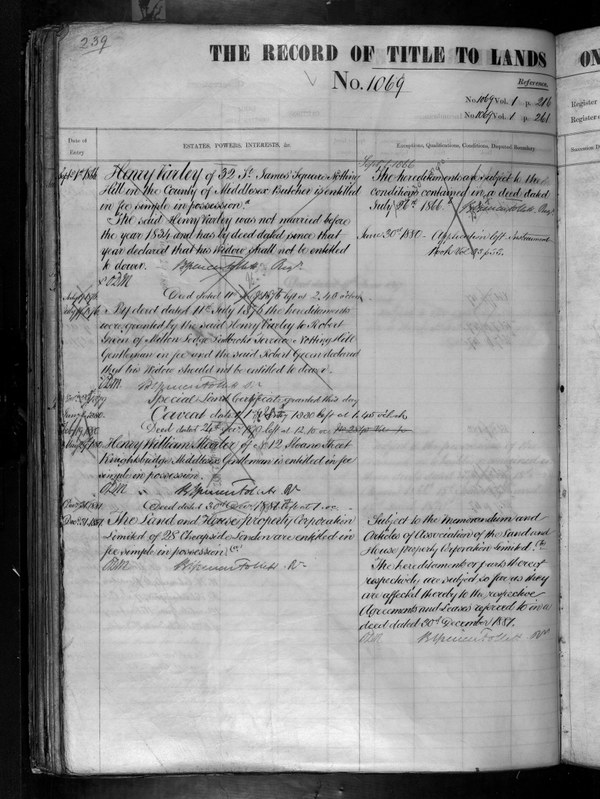 239
THE RECORD OF TITLE TO LANDS
ON
No. 1069
Reference.
No. 1069 Vol. 1 p. 216
No. 1069 Vol. 1 p. 261
Register
Register
Date of
Entry
ESTATES, POWERS, INTERESTS, &c.
Exceptions, Qualifications, Conditions, Disputed Boundary
Succession D
Septr 1st 1866
Henry Varley of 32 St. James' Square Notting
Hill in the County of Middlesex Butcher is entitled
in fee simple in possession.
The said Henry Varley was not married before
the year 1834 and has by deed dated since that
year declared that his widow shall not be entitled
to dower.
Septr 1 1866
The hereditaments are subject to the
conditions contained in a deed dated
July 26th 1866.
June 30th 1880 - Application left Instrument
Book Vol 23
Deed dated 11th July 1876 left at 2.48
By deed dated 11th July 1876 the hereditaments
were granted by the said Henry Varley to Robert
Green of Melton Lodge Terrace Notting Hill
Gentleman in fee and the said Robert Green declared
that his widow should not be entitled to dower.
Special Land Certificate granted this day
Caveat dated 1880 left at 1.45
Deed dated 24th 1880 left at 12.10
Henry William of No 12 Sloane Street
Knightsbridge Middlesex Gentleman is entitled in fee
simple in possession.
Deed dated 30th Decr 1881 left at 1
Decr 31 1881
The Land and House property Corporation
Limited of 28 Cheapside London are entitled in
fee simple in possession
Subject to the memorandum and
Articles of Association of the Land and
House property Corporation Limited.
The hereditaments or parts thereof
respectively are subject so far as they
are affected thereby to the respective
Agreements and Leases referred to in a
deed dated 30th December 1881.